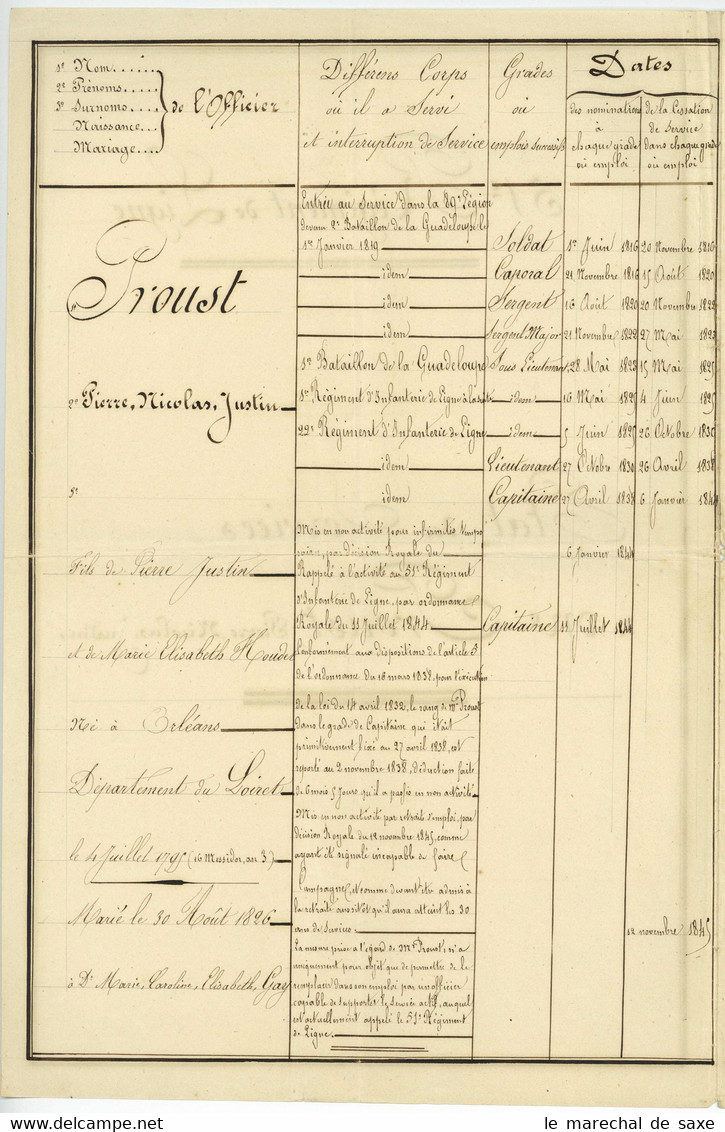 1º Nom......
2º Prénoms....
3º Surnoms....
Naissance...
Mariage....
de l'Officier
Différens Corps
où il a Servi
et interruption de Service
Grades
ou
emplois successifs
Dates
des nominations
à
chaque grade
ou emploi
de la Cessation
de Service
dans chaque grade
ou emploi
Entrée au Service dans la 89e Légion
devenu 2e Bataillon de la Guadeloupe le
1er Janvier 1819 Soldat 1er Juin 1816 20 Novembre 1816
idem Caporal 21 Novembre 1816 15 Août 1820
Proust
idem Sergent 16 Août 1820 20 Novembre 1822
idem Sergent Major 21 Novembre 1822 27 Mai
1er Bataillon de la Guadeloupe Sous Lieutenant 28 Mai 15 Mai 1825
2º Pierre, Nicolas, Justin
1er Régiment d'Infanterie de Ligne idem 16 Mai 1825 4 Juin 1825
22e Régiment d'Infanterie de Ligne idem 5 Juin 1825 26 Octobre 1830
idem Lieutenant 27 Octobre 1830 26 Avril 1838
3º
idem Capitaine 27 Avril 1838 6 Janvier 1844
Mis en non activité pour infirmités tempo
raires, par décision Royale du 6 Janvier 1844
Fils de Pierre Justin
Rappelé à l'activité au 51e Régiment
d'Infanterie de Ligne, par ordonnance
Royale du 11 Juillet 1844 Capitaine 11 Juillet 1844
et de Marie Elisabeth Houdet
Conformément aux dispositions de l'article 5
de l'ordonnance du 16 mars 1838, pour l'exécution
de la loi du 14 avril 1832, le rang de Mr Proust
Né à Orléans
dans le grade de Capitaine qui était
primitivement fixé au 27 avril 1838, est
reporté au 2 novembre 1838, déduction faite
Département du Loiret
de 6 mois 5 Jours qu'il a passés en non activité
Mis en non activité par retrait d'emploi, par
décision Royale du 12 novembre 1845, comme
le 4 Juillet 1795 (16 Messidor, an 3.)
ayant été signalé incapable de faire
Campagne, et comme devant être admis à
la retraite aussitôt qu'il aura atteint les 30
Marié le 30 Août 1826
ans de Services. 12 novembre 1845
La mesure prise à l'égard de Mr Proust, n'a
uniquement pour objet que de permettre de le
à De Marie, Caroline, Elisabeth, Gay
remplacer dans son emploi par un officier
capable de supporter le service actif, auquel
est actuellement appelé le 51e Régiment
de Ligne.
le marechal de saxe